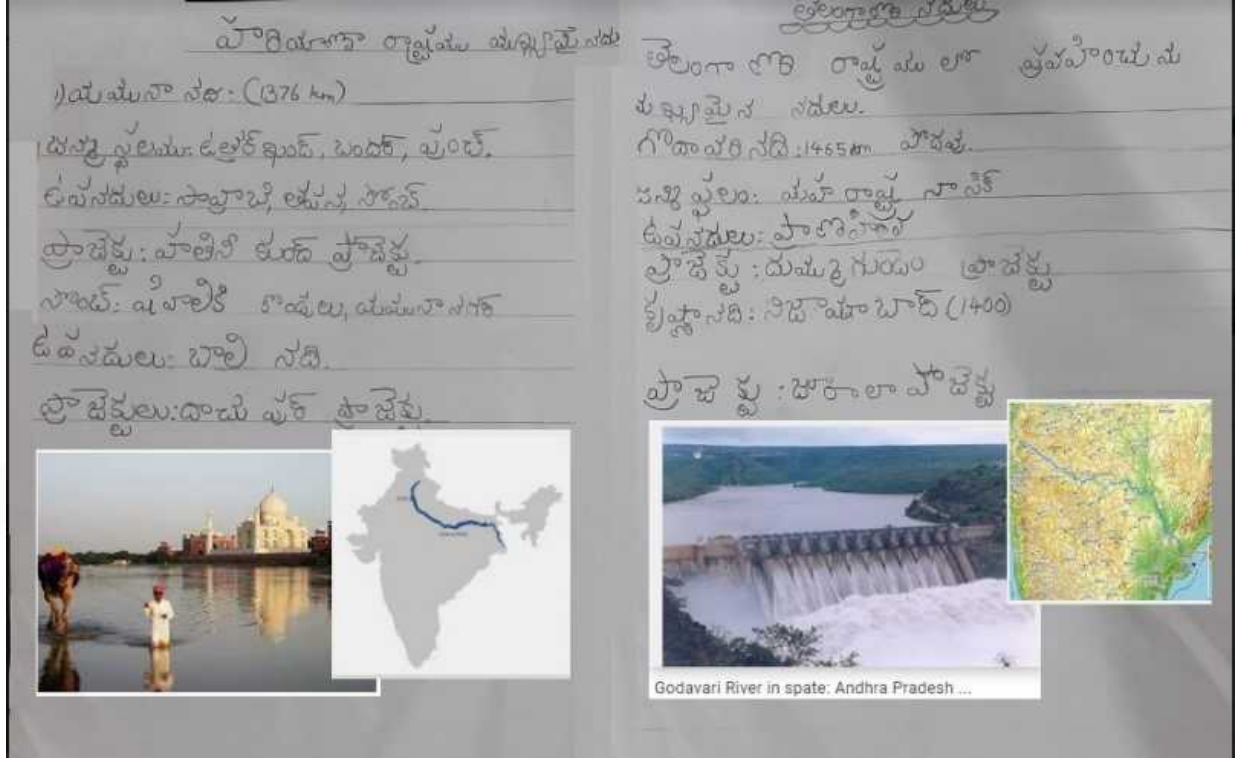 హరియాణా రాష్ట్రము ముఖ్యమైనదు
1) యమునా నది: (1376 km)
జన్మ స్థలము: ఉత్తర్ ఖండ్, బందర్, పుంచ్.
ఉపనదులు:
ప్రాజెక్టు: హతినీ కుండ్ ప్రాజెక్టు.
సోంబ్: షివాలికి కొండలు, యమునా నగర్
ఉపనదులు: బాలి నది.
ప్రాజెక్టులు: దాదు పుర్ ప్రాజెక్టు.
తెలంగాణ నదులు
తెలంగాణ రాష్ట్రము లో ప్రవహించు
ముఖ్యమైన నదులు.
గోదావరి నది: 1465 km పొడవు.
జన్మ స్థలం: మహా రాష్ట్ర నాసిక్
ఉపనదులు: ప్రాణహిత
ప్రాజెక్టు: దుమ్ము గుండం ప్రాజెక్టు
కృష్ణా నది: నిజామాబాద్ (1400)
ప్రాజెక్టు: జూరాలా ప్రాజెక్టు
Godavari River in spate: Andhra Pradesh ...